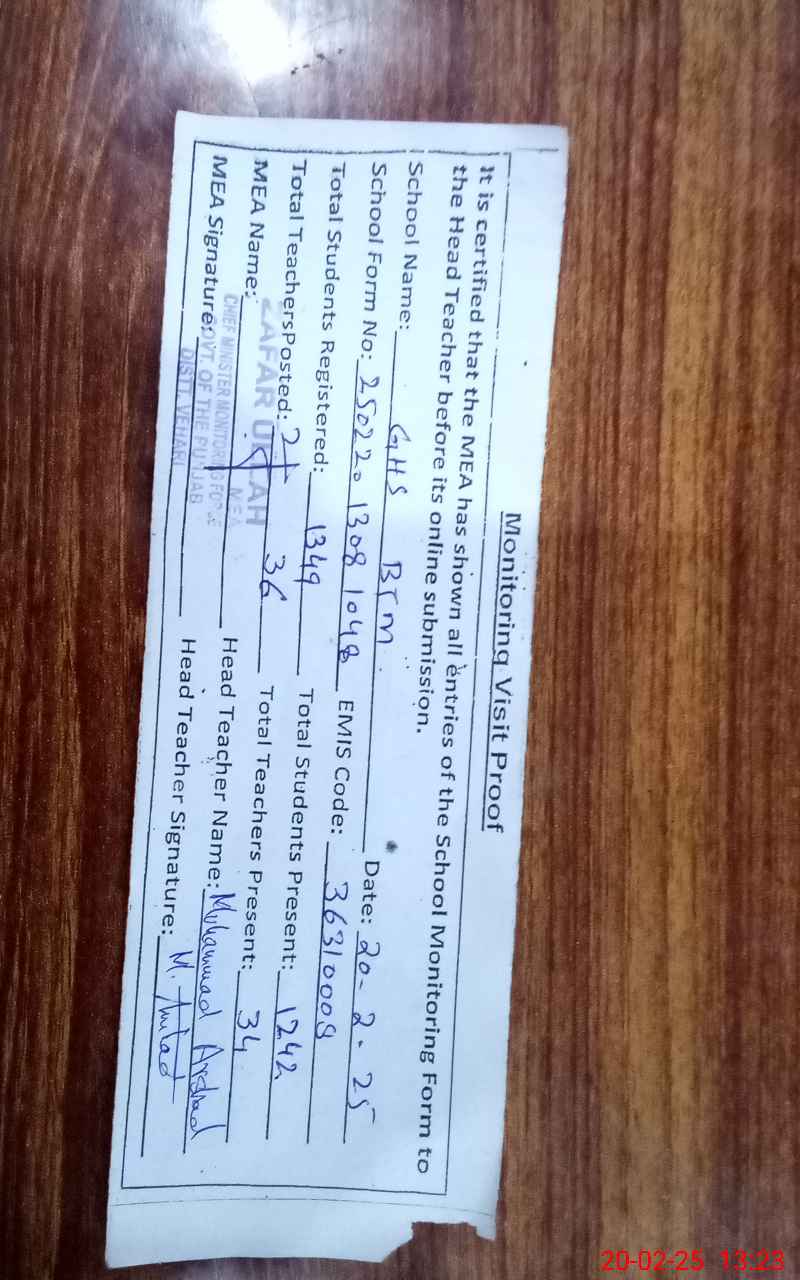 Monitoring Visit Proof
It is certified that the MEA has shown all entries of the School Monitoring Form to
the Head Teacher before its online submission.
School Name: GHS BTM Date: 20-2-25
School Form No: 250220 1308 1048 EMIS Code: 36310008
Total Students Registered: 1349 Total Students Present: 1242
Total Teachers Posted: 36 Total Teachers Present: 34
MEA Name: ZAFAR ULLAH Head Teacher Name: Muhammad Arshad
MEA Signature: Head Teacher Signature: M. Arshad
MEA
CHIEF MINISTER MONITORING FORCE
GOVT. OF THE PUNJAB
DISTT. VEHARI
20-02-25 13:23